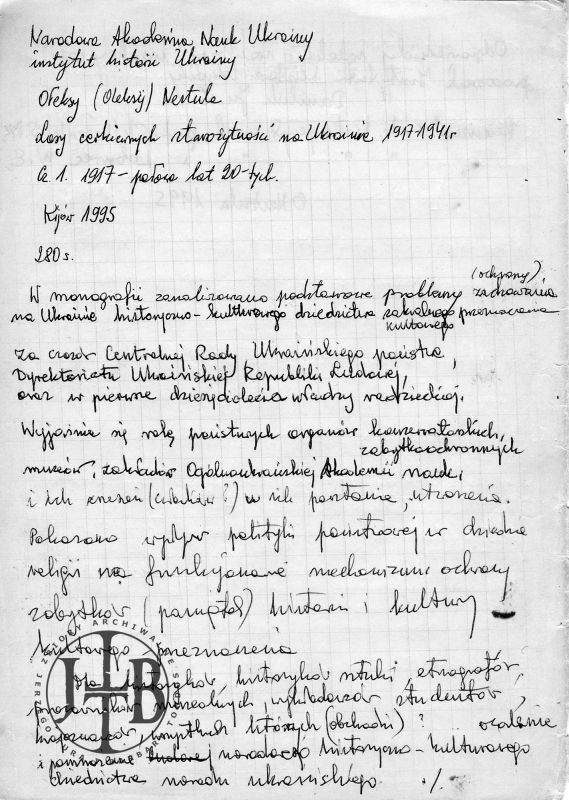 Narodowa Akademia Nauk Ukrainy
instytut historii Ukrainy
Oleksy (Oleksij) Nestula
Losy cerkiewnych starożytności na Ukrainie 1917-1941r
Cz. 1. 1917 – połowa lat 20-tych.
Kijów 1995
280 s.
(ochrony)
W monografii zanalizowano podstawowe problemy zachowania
na Ukrainie historyczno-kulturowego dziedzictwa sakralnego przeznaczenia
kultowego
za czasów Centralnej Rady Ukraińskiego państwa,
Dyrektoriatu Ukraińskiej Republiki Ludowej,
oraz w pierwsze dziesięciolecia władzy radzieckiej.
Wyjaśnia się rolę państwowych organów konserwatorskich,
zabytkoochronnych
muzeów, zakładów Ogólnoukraińskiej Akademii nauk,
i ich (członków?) w ich
Pokazano wpływ polityki państwowej w dziedzinie
religii na funkcjonowanie mechanizmu ochrony
zabytków (pamiątek) historii i kultury
kultowego przeznaczenia
Dla historyków, historyków sztuki, etnografów,
pracowników muzealnych, wykładowców studentów,
krajoznawców, wszystkich których (obchodzi)? ocalenie
i pomnożenie narodowego historyczno-kulturowego
dziedzictwa narodu ukraińskiego. ./.
JLTB